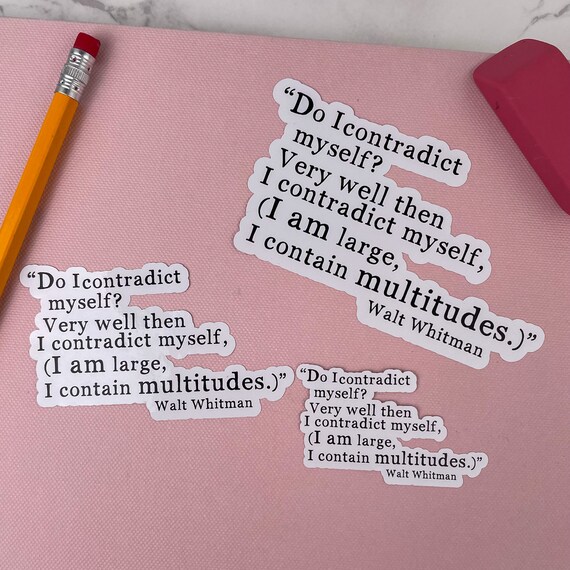 “Do Icontradict
myself?
Very well then
I contradict myself,
(I am large,
I contain multitudes.)”
Walt Whitman
“Do Icontradict
myself?
Very well then
I contradict myself,
(I am large,
I contain multitudes.)”
Walt Whitman
“Do Icontradict
myself?
Very well then
I contradict myself,
(I am large,
I contain multitudes.)”
Walt Whitman